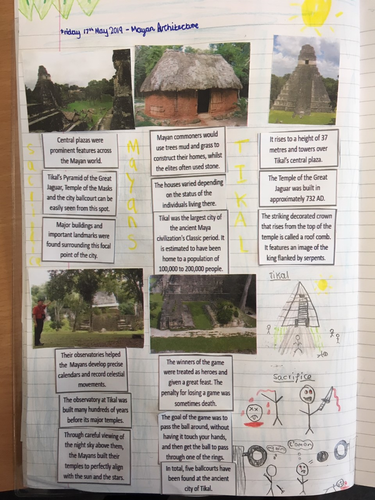 Friday 17th May 2019 - Mayan Architecture
Central plazas were
prominent features across
the Mayan world.
Tikal's Pyramid of the Great
Jaguar, Temple of the Masks
and the city ballcourt can be
easily seen from this spot.
Major buildings and
important landmarks were
found surrounding this focal
point of the city.
MAYANS
Mayan commoners would
use trees mud and grass to
construct their homes, whilst
the elites often used stone.
The houses varied depending
on the status of the
individuals living there.
Tikal was the largest city of
the ancient Maya
civilization's Classic period. It
is estimated to have been
home to a population of
100,000 to 200,000 people.
TIKAL
It rises to a height of 37
metres and towers over
Tikal's central plaza.
The Temple of the Great
Jaguar was built in
approximately 732 AD.
The striking decorated crown
that rises from the top of the
temple is called a roof comb.
It features an image of the
king flanked by serpents.
Their observatories helped
the Mayans develop precise
calendars and record celestial
movements.
The observatory at Tikal was
built many hundreds of years
before its major temples.
Through careful viewing of
the night sky above them,
the Mayans built their
temples to perfectly align
with the sun and the stars.
The winners of the game
were treated as heroes and
given a great feast. The
penalty for losing a game was
sometimes death.
The goal of the game was to
pass the ball around, without
having it touch your hands,
and then get the ball to pass
through one of the rings.
In total, five ballcourts have
been found at the ancient
city of Tikal.
Tikal
Sacrifice